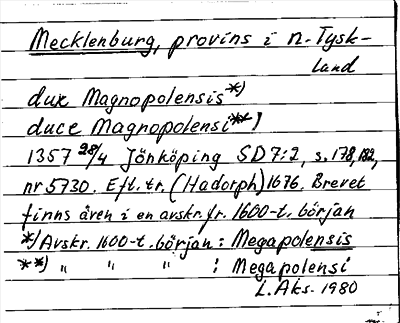 Mecklenburg, provins i n. Tysk-
land
dux Magnopolensis*)
duce Magnopolensi**)
1357 28/4 Jönköping SD 7:2, s. 178, 182,
nr 5730. Eft. tr. (Hadorph) 1676. Brevet
finns även i en avskr. fr. 1600-t. början
*) Avskr. 1600-t. början : Megapolensis
**) " " " : Megapolensi
L. Aks. 1980